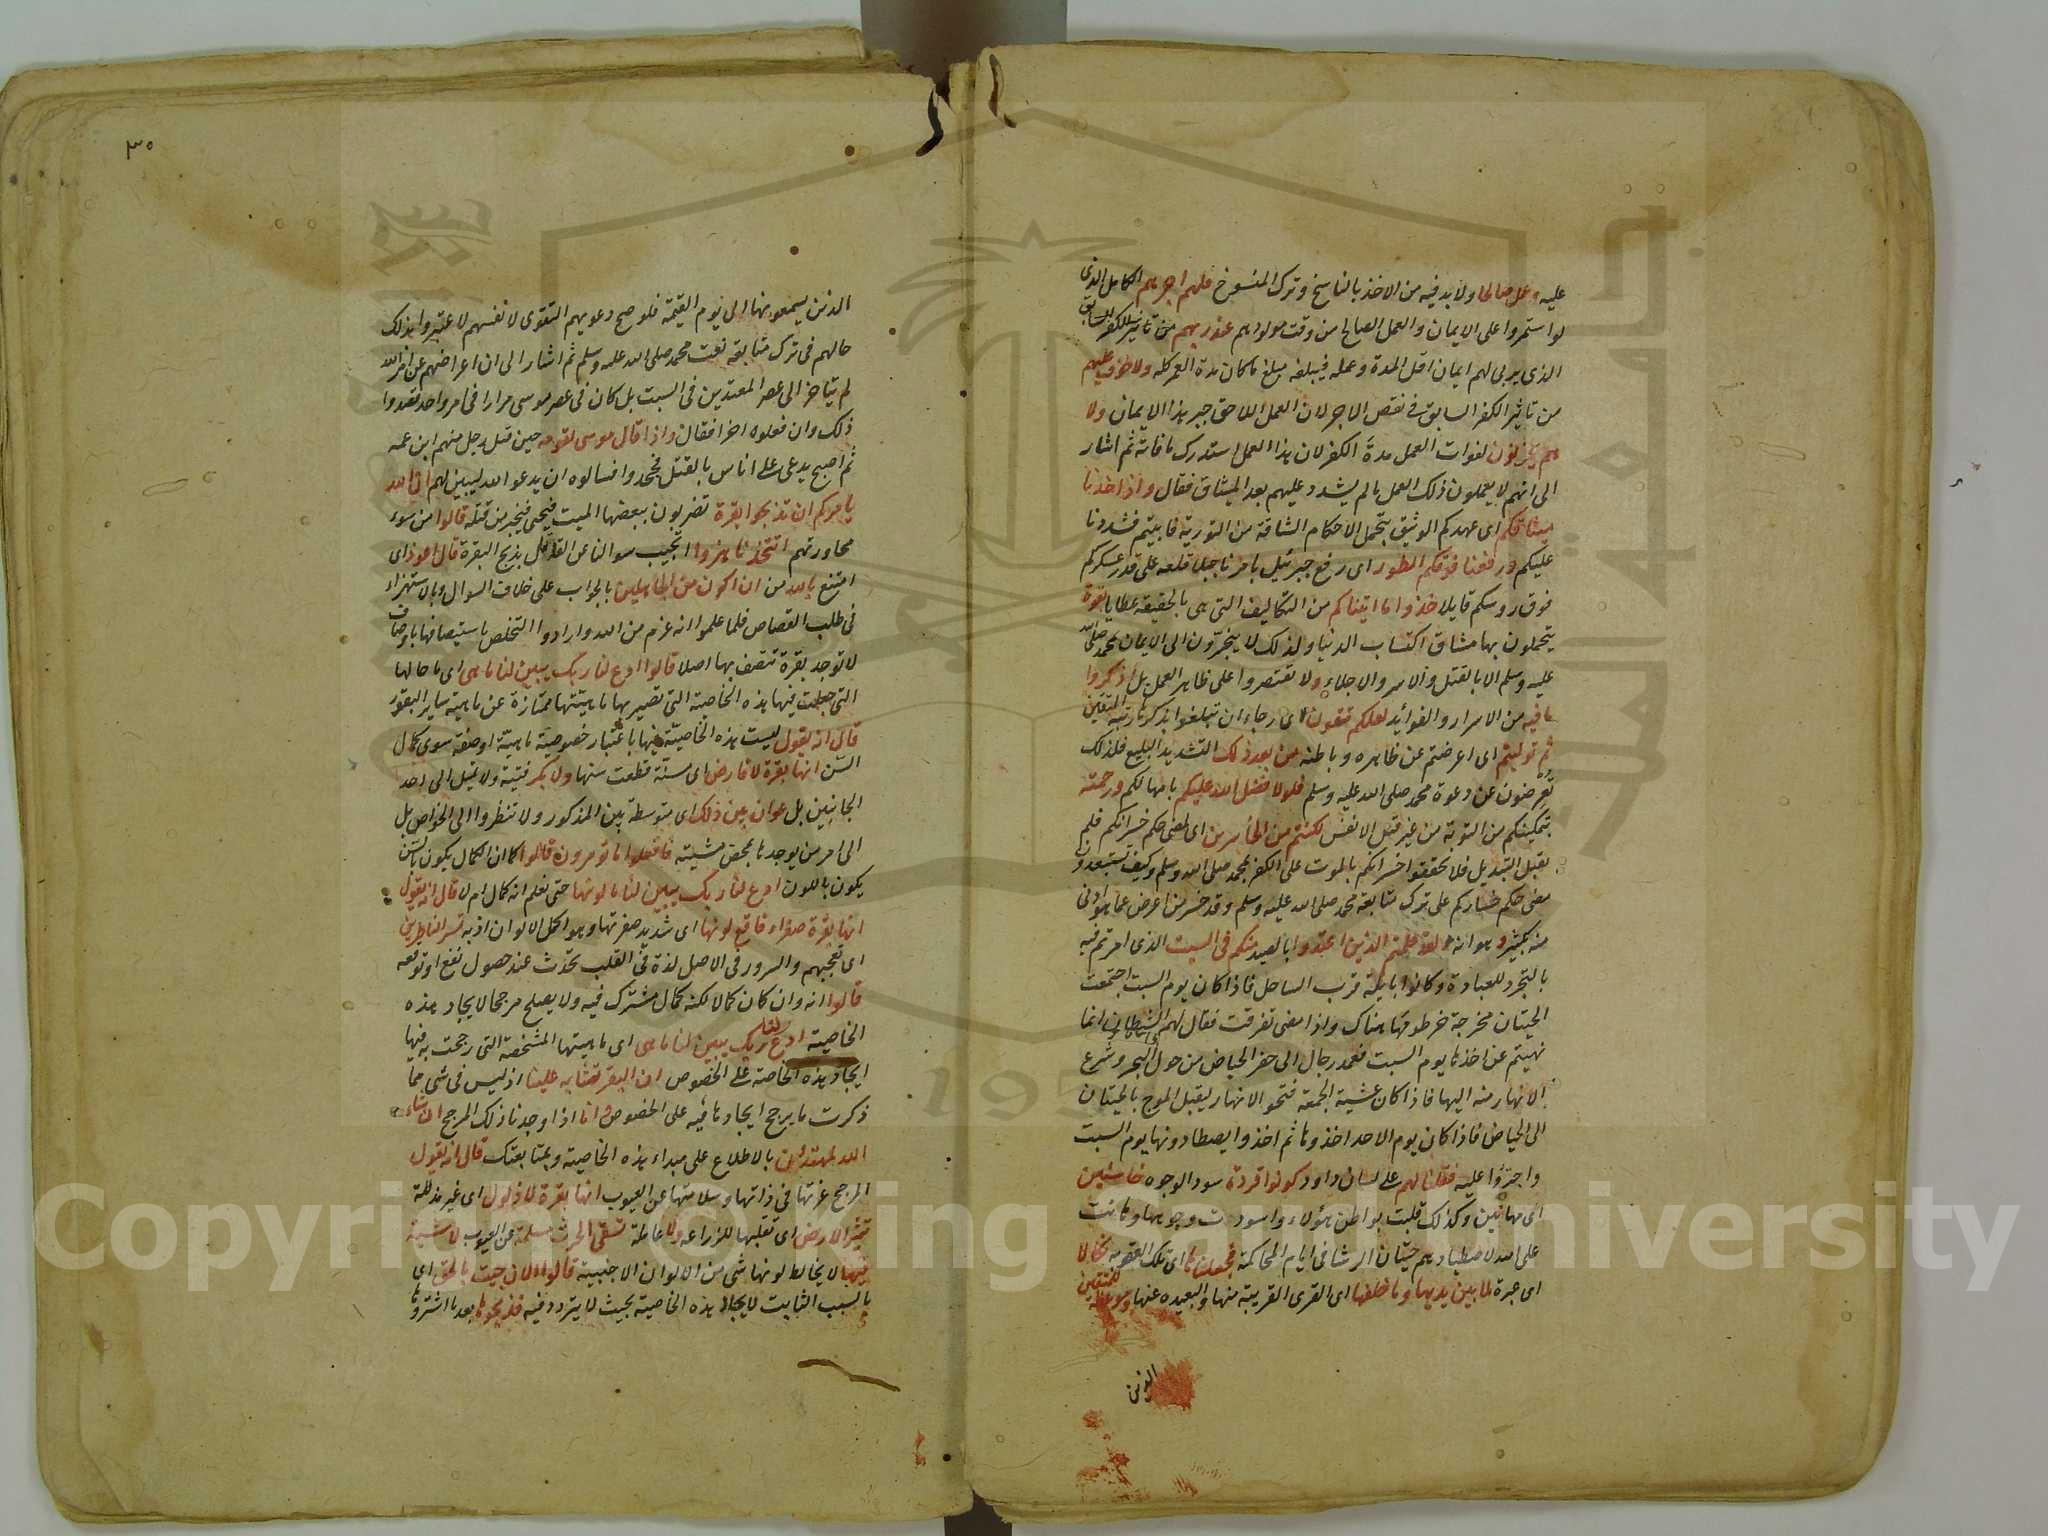 عليه وعمل صالحا ولا بد فيه من الاخذ بالناسخ وترك المنسوخ فلهم اجرهم الكامل الذى
لو استمروا على الايمان والعمل الصالح من وقت مولودهم عند ربهم من تاثير للكفر السابق
الذى يربى لهم ايمان اقل المدة وعمله فيبلغه مبلغ ما كان مدة العمر كله ولا خوف عليهم
من تاثير الكفر السابق فى نقص الاجر لان العمل اللاحق جبر بهذا الايمان ولا
هم يحزنون لفوات العمل مدة الكفر لان هذا العمل استدرك ما فاته ثم اشار
الى انهم لا يعملون ذلك العمل ما لم يشدد عليهم بعد الميثاق فقال واذ اخذنا
ميثاقكم اى عهدكم الوثيق بتحمل الاحكام الشاقة من التورية فابيتم فشددنا
عليكم ورفعنا فوقكم الطور اى رفع جبرئيل بامرنا جبلا قلعه على قدر عسكركم
فوق رؤسكم قايلا خذوا ما اتيناكم من التكاليف التى هى بالحقيقة عطايا بقوة
يتحملون بها مشاق اكتساب الدنيا ولذلك لا ينجرّون الى الايمان بمحمد صلى الله
عليه وسلم الا بالقتل والاسر والاجلاء ولا تقتصروا على ظاهر العمل بل اذكروا
ما فيه من الاسرار والفوائد لعلكم تتقون اى رجاء ان تبلغوا بذكرها رتبة المتقين
ثم توليتم اى اعرضتم عن ظاهره وباطنه من بعد ذلك التشديد البليغ فلذلك
تعرضون عن دعوة محمد صلى الله عليه وسلم فلولا فضل الله عليكم بامهالكم ورحمته
بتمكينكم من التوبة من غير قتل الانفس لكنتم من الخاسرين اى لمضى حكم خسرانكم فلم
يقبل التبديل فلا تحققوا خسرانكم بالموت على الكفر بمحمد صلى الله وسلم وكيف تستبعدون
مضى حكم خساركم على ترك متابعة محمد صلى الله عليه وسلم وقد خسر من اعرض عما هو ادنى
منه بكثير وهو انه لقد علمتم الذين اعتدوا بالصيد منكم فى السبت الذى امرتم فيه
بالتجرد للعبادة وكانوا بايلة قرب الساحل فاذا كان يوم السبت اجتمعت
الحيتان مخرجة خرطومها هناك واذا مضى تفرقت فقال لهم الشيطان انما
نهيتم عن اخذها يوم السبت فعمد رجال الى حفر الحياض من حول البحر وشرع
الانهار منه اليها فاذا كان عشية الجمعة فتحوا الانهار يقبل الموج بالحيتان
الى الحياض فاذا كان يوم الاحد اخذوها ثم اخذوا يصطادونها يوم السبت
واجترؤا عليه فقلنا لهم على لسان داود كونوا قردة سود الوجوه خاسئين
اى مهانين وكذلك قلبت بواطن هؤلاء واسودت وجوهها وهانت
على الله لاصطيادهم حيتان الرشا فى ايام المحاكمة فجعلناها اى تلك العقوبة نكالا
اى عبرة لما بين يديها وما خلفها اى القرى القريبة منها والبعيدة عنها وموعظة للمتقين
الذين
٣٠
الذين يسمعونها الى يوم القيمة فلو صح دعويهم التقوى لانفسهم لاعتبروا بذلك
حالهم فى ترك متابعة نعت محمد صلى الله عليه وسلم ثم اشار الى ان اعراضهم عن امر الله
لم يتاخر الى عصر المعتدين فى السبت بل كان فى عصر موسى مرارا فى امر واحد تقصدوا
ذلك وان فعلوه اخرا فقال واذ قال موسى لقومه حين قتل رجل منهم ابن عمه
ثم اصبح يدعى على اناس بالقتل فجحدوا فسالوه ان يدعو الله ليبين لهم ان الله
يامركم ان تذبحوا بقرة تضربون ببعضها الميت فيحيى فيخبر من قتله قالوا من سوء
محاورتهم اتتخذنا هزوا اتجيب سوالنا عن القاتل بذبح البقرة قال اعوذ اى
امتنع بالله من ان اكون من الجاهلين بالجواب على خلاف السوال وبالاستهزاء
فى طلب القصاص فلما علموا انه عزم من الله وارادوا التخلص باستيصافها باوصاف
لا توجد بقرة تتصف بها اصلا قالوا ادع لنا ربك يبين لنا ما هى اى ما حالها
التى جعلت فيها هذه الخاصية التى تصير بها ماهيتها ممتازة عن ماهية ساير البقور
قال انه يقول ليست هذه الخاصية فيها باعتبار خصوصية ماهية او صفة سوى كمال
السن انها بقرة لا فارض اى مسنة قطعت سنها ولا بكر فتية ولا تميل الى احد
الجانبين بل عوان بين ذلك اى متوسطة بين المذكور ولا تنظروا الى الخواص بل
الى امر من يوجدها بمحض مشيته فافعلوا ما تومرون قالوا كما ان الكمال يكون بالسن
يكون باللون ادع لنا ربك يبين لنا ما لونها حتى نعلم انه كمال ام لا قال انه يقول
انها بقرة صفراء فاقع لونها اى شديد صفرتها وهو اكمل الالوان اذ به تسر الناظرين
اى تعجبهم والسرور فى الاصل لذة فى القلب تحدث عند حصول نفع او توقعه
قالوا انه وان كان كمالا لكنه كمال مشترك فيه ولا يصلح مرجحا لايجاد هذه
الخاصية ادع لنا ربك يبين لنا ما هى اى ماهيتها المشخصة التى رجحت به فيها
ايجاد هذه الخاصة على الخصوص ان البقر تشابه علينا اذ ليس فى شى مما
ذكرت ما يرجح ايجادها فيه على الخصوص وانا اذا وجدنا ذلك المرجح ان شاء
الله لمهتدون بالاطلاع على مبداء هذه الخاصية وبمتابعتك قال انه يقول
المرجح عزتها فى ذاتها وسلامتها عن العيوب انها بقرة لا ذلول اى غير مذللة
تثير الارض اى تقلبها للزراعة ولا عاملة تسقى الحرث مسلمة عن العيوب لا شية
فيها لا يخالط لونها شى من الالوان الاجنبية قالوا الان جيت بالحق اى
بالسبب الثابت لايجاد هذه الخاصية بحيث لا يتردد فيه فذبحوها بعد ما اشتروها